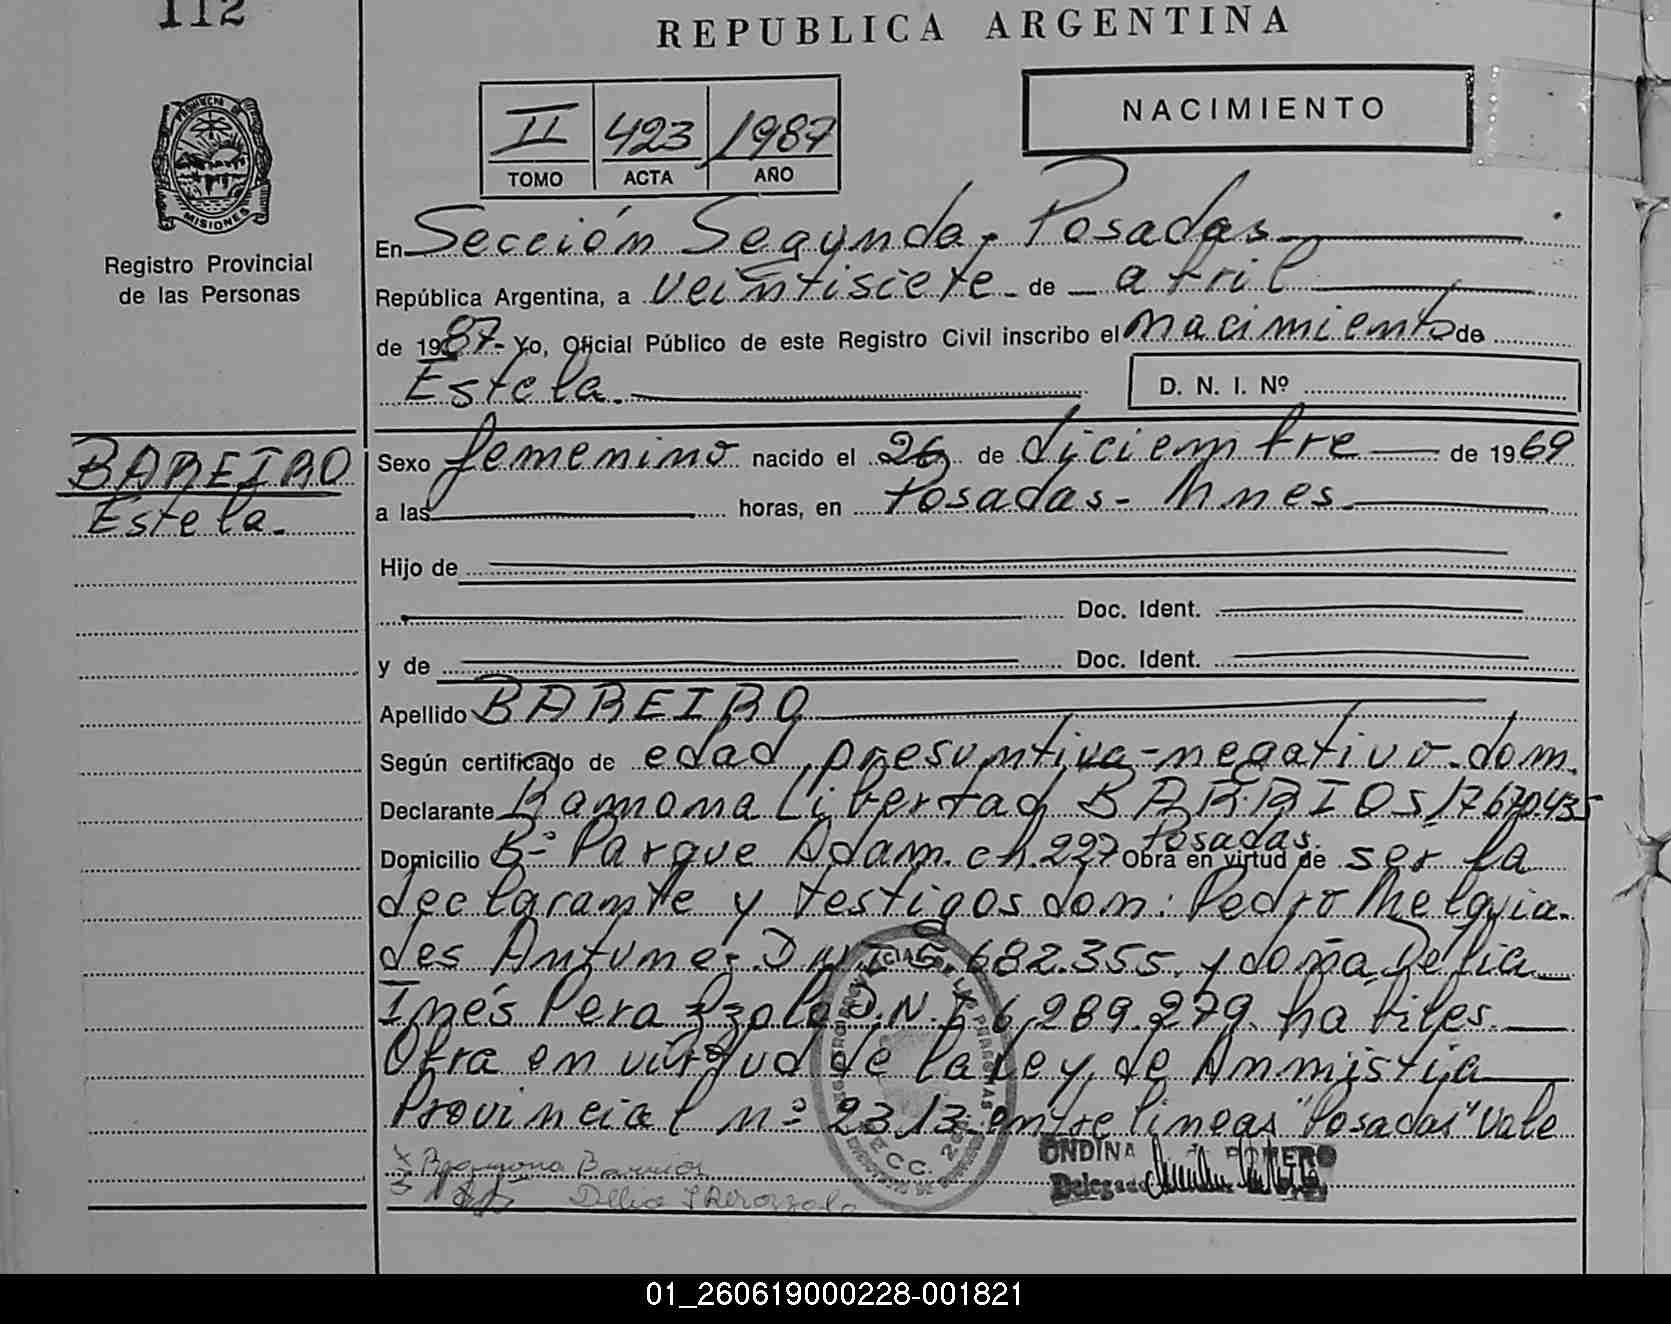 112
REPUBLICA ARGENTINA
NACIMIENTO
II 423 1987
TOMO ACTA AÑO
PROVINCIA DE
MISIONES
Registro Provincial
de las Personas
En Sección Segunda, Posadas
República Argentina, a veintisiete de abril
de 1987 - Yo, Oficial Público de este Registro Civil inscribo el nacimiento de
Estela.
D. N. I. Nº
BAREIRO
Estela.
Sexo femenino nacido el 26 de diciembre de 1969
a las horas, en Posadas - Mnes
Hijo de
Doc. Ident.
y de Doc. Ident.
Apellido BAREIRO
Según certificado de edad presuntiva - negativo - dom.
Declarante Ramona Libertad BARRIOS 17670.435
Domicilio Bº Parque Adam. ch. 227 Posadas. Obra en virtud de ser la
declarante y testigos don: Pedro Melquia-
des Antune D.N.I. 682.355. y doña Delia
Inés Perazzolo D.N.I. 6,289.279. habiles.
Obra en virtud de la Ley de Ammistia
Provincial nº 2313. entre lineas "Posadas" Vale
Ramona Barrios
Delia I Perazzolo
ONDINA
Delegada
01_260619000228-001821